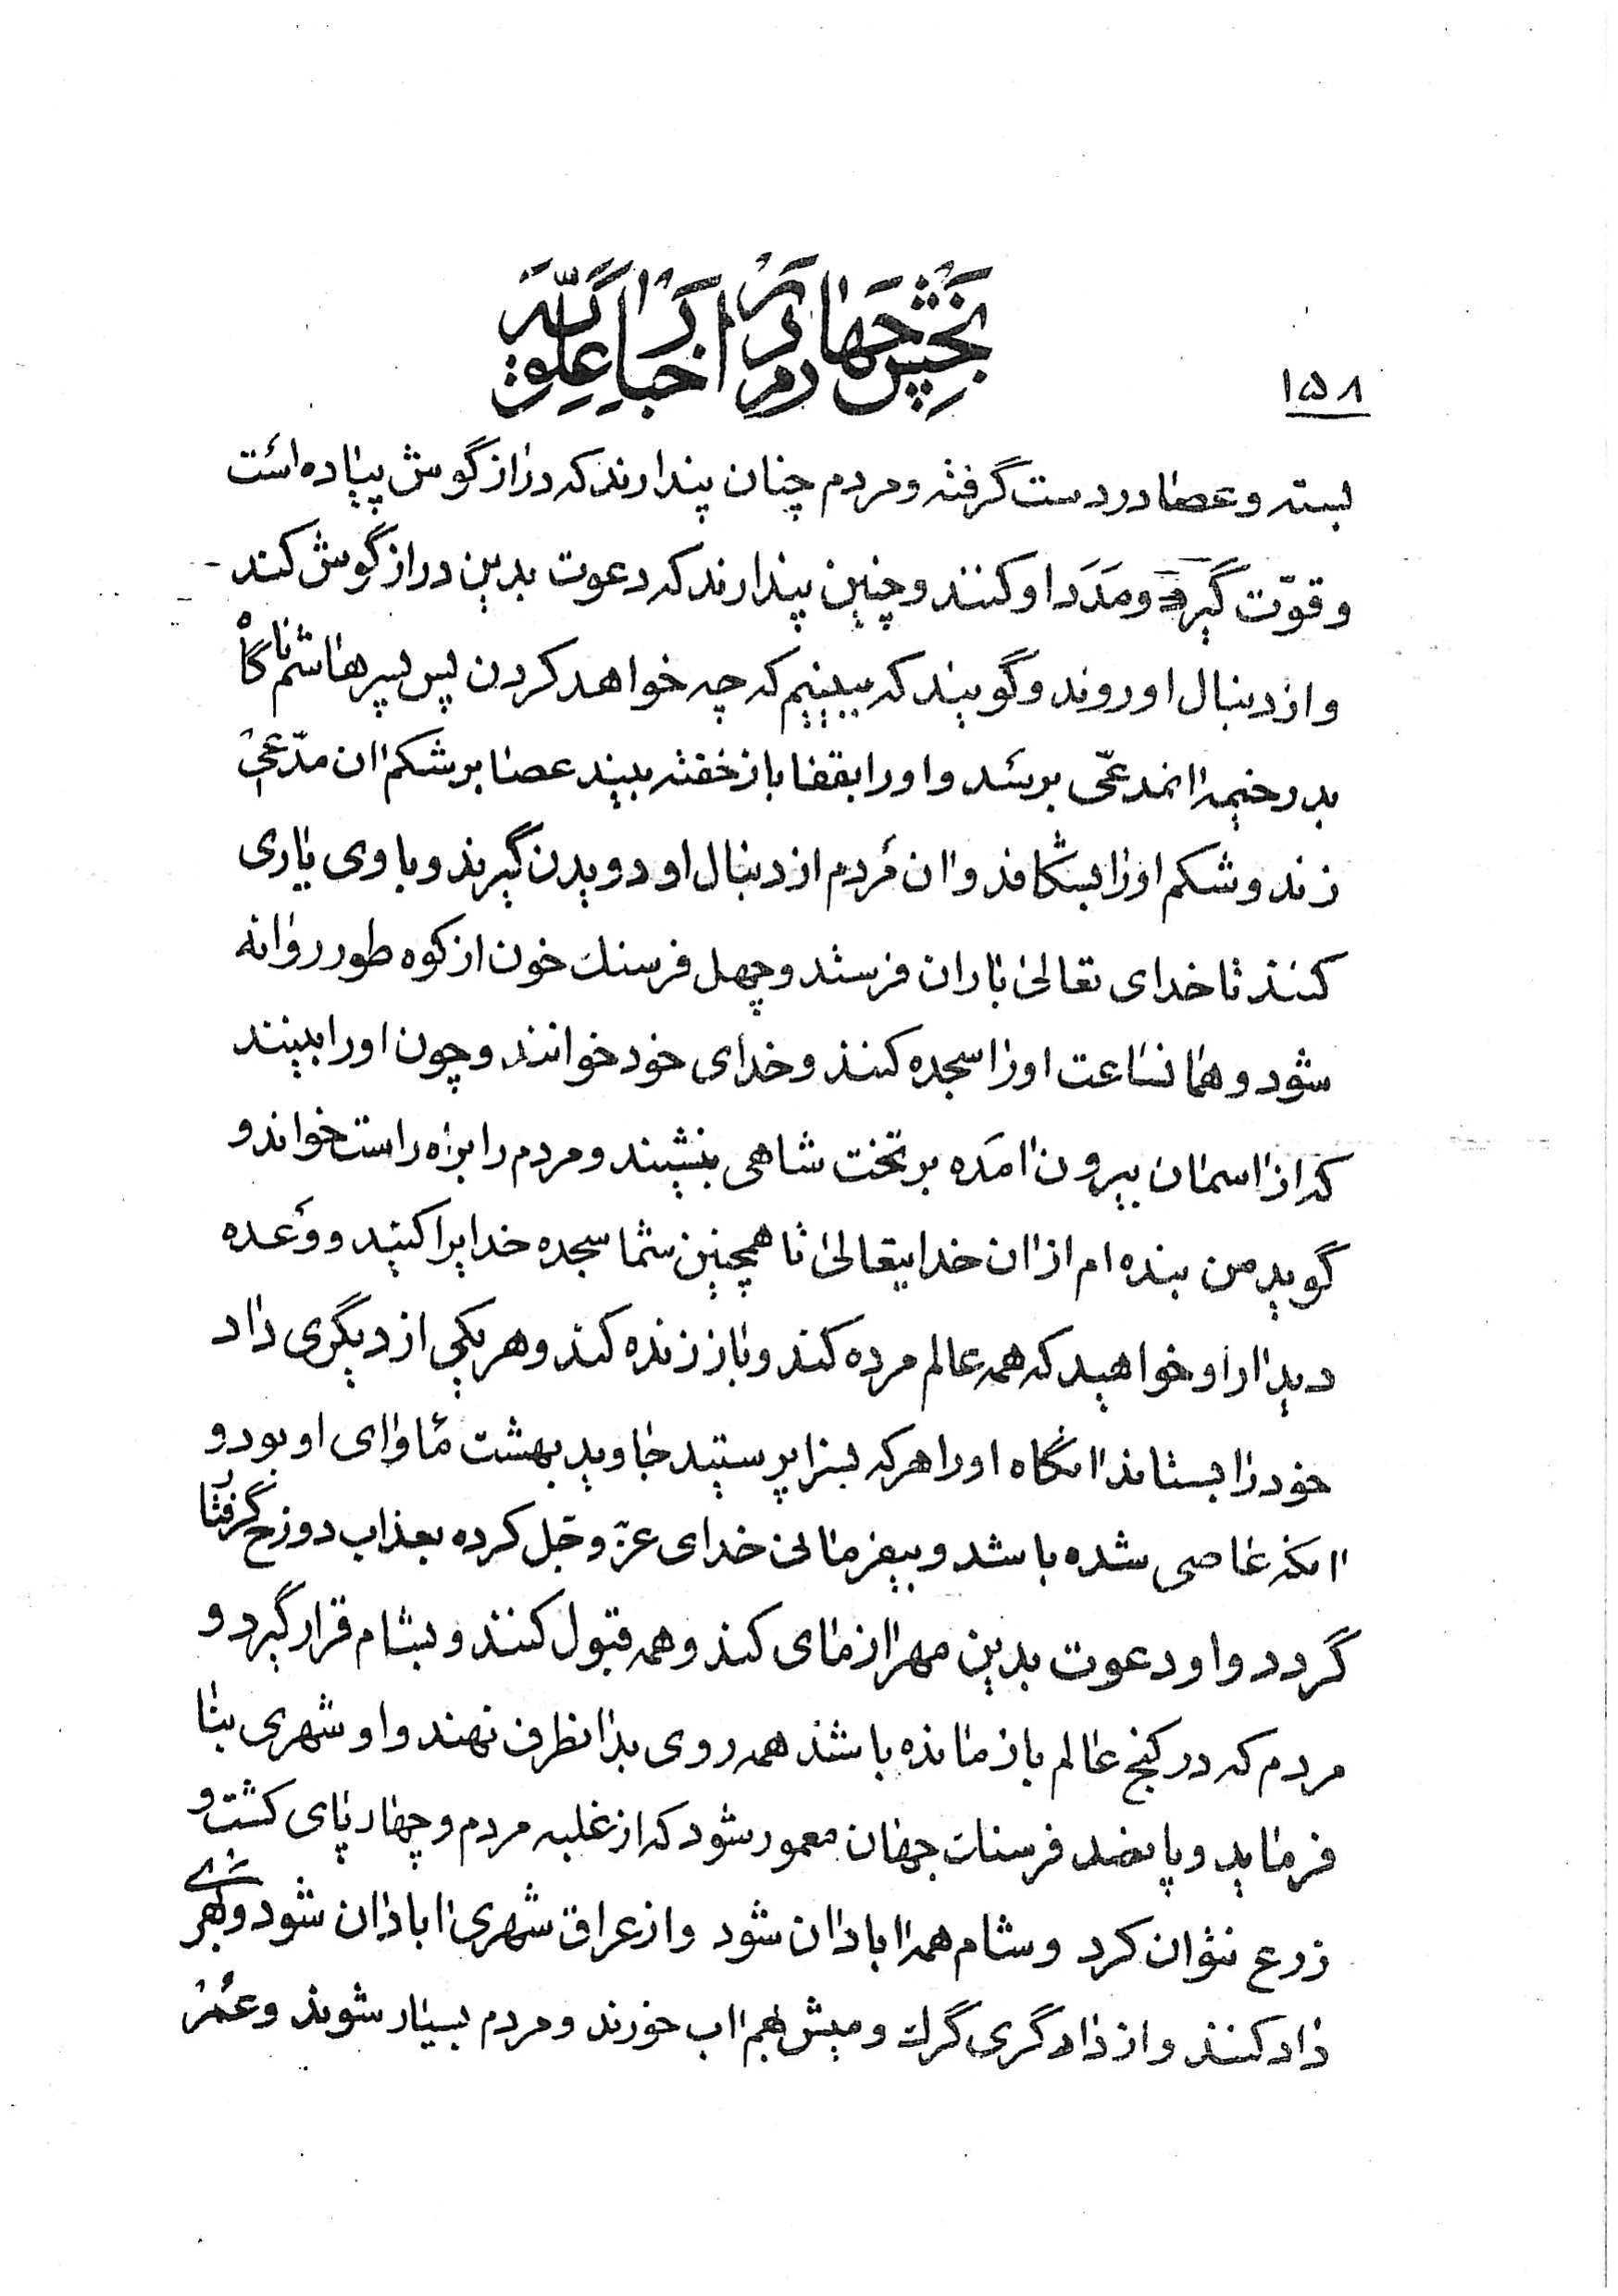 بخش چهارم در اخبار علویّه
۱۵۸
بسته و عصا در دست گرفته و مردم چنان پندارند که دراز گوش پیاده است
و قوّت گیرد و مدد او کنند و چنین پندارند که دعوت بدین دراز گوش کند
و از دنبال او روند و گویند که ببینیم که چه خواهد کردن پس پسر هاشم ناگاه
بدر خیمه انمدعّی برسد و او را بقفا باز خفته بیند عصا بر شکم ان مدّعی
زند و شکم او را بشکافد و ان مردم از دنبال او دویدن گیرند و با وی یاری
کنند تا خدای تعالی باران فرستد و چهل فرسنك خون از کوه طور روانه
شود و همانساعت او را سجده کنند و خدای خود خوانند و چون او را ببینند
که از اسمان بیرون امده بر تخت شاهی بنشیند و مردم را براه راست خواند و
گوید من بنده ام از ان خدایتعالی تا همچنین شما سجده خدایرا کنید و وعده
دیدار او خواهید که همه عالم مرده کند و باز زنده کند و هر یکی از دیگری داد
خود را بستاند انگاه او را هر که بسزا پرستید جاوید بهشت ماوای او بود و
انکه عاصی شده باشد و بیفرمانی خدای عزّ و جل کرده بعذاب دوزخ گرفتار
گردد و او دعوت بدین مهرازمای کند و همه قبول کنند و بشام قرار گیرد و
مردم که در کنج عالم باز مانده باشند همه روی بدانطرف نهند و او شهری بنا
فرماید و پانصد فرسنك جهان معمور شود که از غلبه مردم و چهار پای کشت و
زرع نتوان کرد و شام همه ابادان شود و از عراق شهری ابادان شود و بهر
داد کنند و از دادگری گرك و میش بهم اب خورند و مردم بسیار شوند و عمر